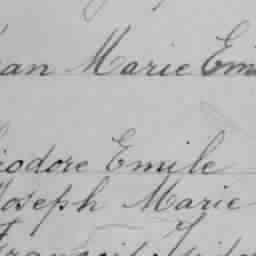 ean Marie Em
éodore Emile
Joseph Marie